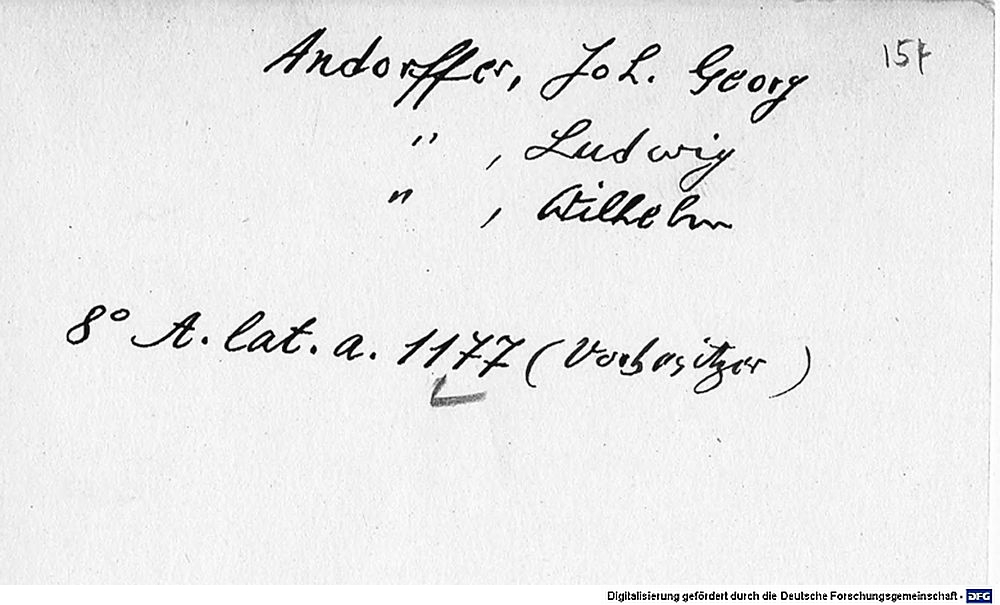 Andorffer, Joh. Georg
" , Ludwig
" , Wilhelm
8° A. lat. a. 1177 (Vorbesitzer)
Digitalisierung gefördert durch die Deutsche Forschungsgemeinschaft - DFG